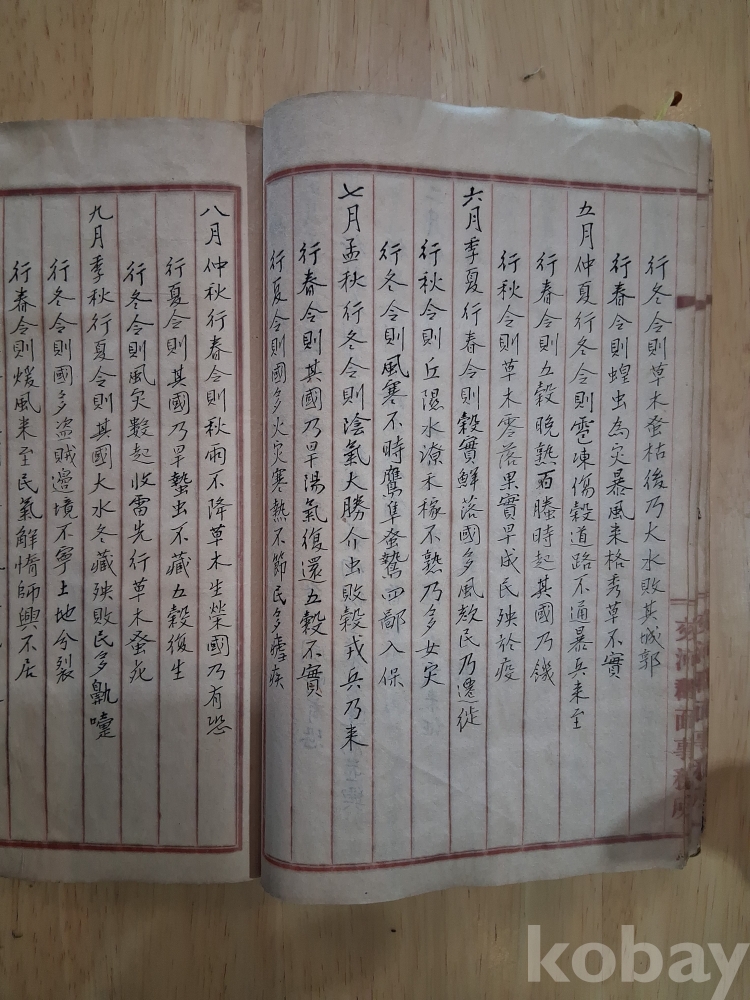 行冬令則草木蚤枯後乃大水敗其城郭
行春令則蝗虫為灾暴風来格秀草不實
五月仲夏行冬令則雹凍傷穀道路不通暴兵来至
行春令則五穀晚熟百螣時起其國乃饑
行秋令則草木零落果實早成民殃於疫
六月季夏行春令則穀實鮮落國多風欬民乃遷徙
行秋令則丘隰水潦禾稼不熟乃多女灾
行冬令則風寒不時鷹隼蚤鷙四鄙入保
七月孟秋行冬令則陰氣大勝介虫敗穀戎兵乃来
行春令則其國乃旱陽氣復還五穀不實
行夏令則國多火灾寒熱不節民多瘧疾
八月仲秋行春令則秋雨不降草木生榮國乃有恐
行夏令則其國乃旱蟄虫不藏五穀復生
行冬令則風灾數起收雷先行草木蚤死
九月季秋行夏令則其國大水冬藏殃敗民多鼽嚏
行冬令則國多盗賊邊境不寧土地分裂
行春令則煖風来至民氣解惰師興不居
kobay